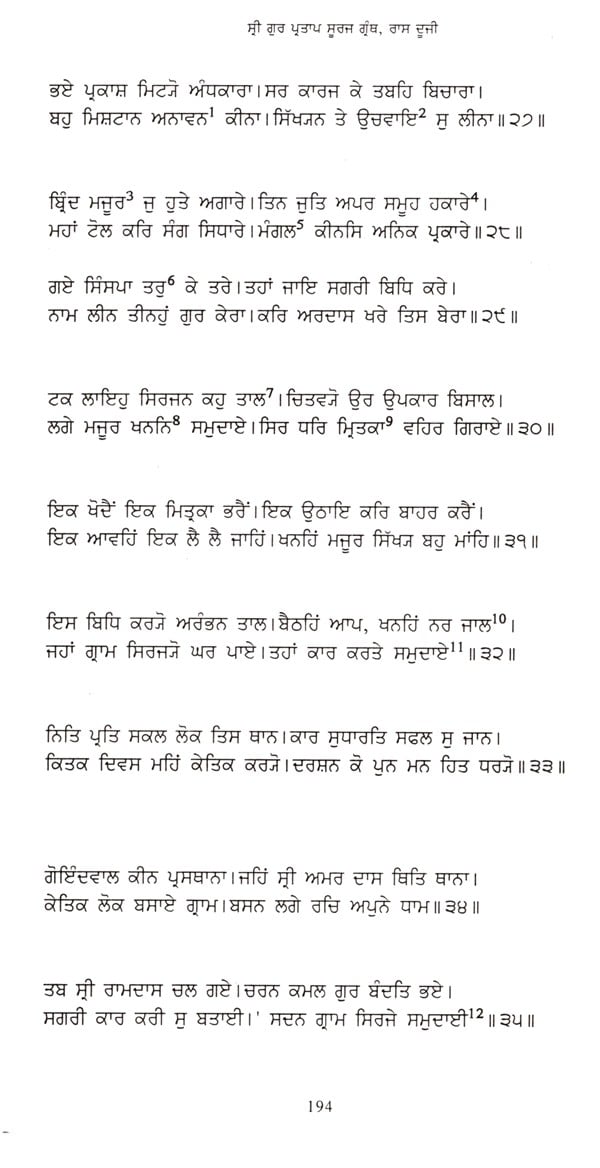 ਸ੍ਰੀ ਗੁਰ ਪ੍ਰਤਾਪ ਸੂਰਜ ਗ੍ਰੰਥ, ਰਾਸ ਦੂਜੀ
ਭਏ ਪ੍ਰਕਾਸ਼ ਮਿਟ੍ਯੋ ਅੰਧਕਾਰਾ।ਸਰ ਕਾਰਜ ਕੇ ਤਬਹਿ ਬਿਚਾਰਾ।
ਬਹੁ ਮਿਸ਼ਟਾਨ ਅਨਾਵਨ¹ ਕੀਨਾ।ਸਿੱਖ੍ਯਨ ਤੇ ਉਚਵਾਇ² ਸੁ ਲੀਨਾ॥੨੭॥
ਬ੍ਰਿੰਦ ਮਜੂਰ³ ਜੁ ਹੁਤੇ ਅਗਾਰੇ।ਤਿਨ ਜੁਤਿ ਅਪਰ ਸਮੂਹ ਹਕਾਰੇ⁴।
ਮਹਾਂ ਟੋਲ ਕਰਿ ਸੰਗ ਸਿਧਾਰੇ।ਮੰਗਲ⁵ ਕੀਨਸਿ ਅਨਿਕ ਪ੍ਰਕਾਰੇ॥੨੮॥
ਗਏ ਸਿੰਸਪਾ ਤਰੁ⁶ ਕੇ ਤਰੇ।ਤਹਾਂ ਜਾਇ ਸਗਰੀ ਬਿਧਿ ਕਰੇ।
ਨਾਮ ਲੀਨ ਤੀਨਹੁਂ ਗੁਰ ਕੇਰਾ।ਕਰਿ ਅਰਦਾਸ ਖਰੇ ਤਿਸ ਬੇਰਾ॥੨੯॥
ਟਕ ਲਾਇਹੁ ਸਿਰਜਨ ਕਹੁ ਤਾਲ⁷।ਚਿਤਵ੍ਯੋ ਉਰ ਉਪਕਾਰ ਬਿਸਾਲ।
ਲਗੇ ਮਜੂਰ ਖਨਨਿ⁸ ਸਮੁਦਾਏ।ਸਿਰ ਧਰਿ ਮ੍ਰਿਤਕਾ⁹ ਵਹਿਰ ਗਿਰਾਏ॥੩੦॥
ਇਕ ਖੋਦੈਂ ਇਕ ਮਿਤ੍ਰਕਾ ਭਰੈਂ।ਇਕ ਉਠਾਇ ਕਰਿ ਬਾਹਰ ਕਰੈਂ।
ਇਕ ਆਵਹਿਂ ਇਕ ਲੈ ਲੈ ਜਾਹਿਂ।ਖਨਹਿਂ ਮਜੂਰ ਸਿੱਖ੍ਯ ਬਹੁ ਮਾਂਹਿ॥੩੧॥
ਇਸ ਬਿਧਿ ਕਰ੍ਯੋ ਅਰੰਭਨ ਤਾਲ।ਬੈਠਹਿਂ ਆਪ, ਖਨਹਿਂ ਨਰ ਜਾਲ¹⁰।
ਜਹਾਂ ਗ੍ਰਾਮ ਸਿਰਜ੍ਯੋ ਘਰ ਪਾਏ।ਤਹਾਂ ਕਾਰ ਕਰਤੇ ਸਮੁਦਾਏ¹¹॥੩੨॥
ਨਿਤਿ ਪ੍ਰਤਿ ਸਕਲ ਲੋਕ ਤਿਸ ਥਾਨ।ਕਾਰ ਸੁਧਾਰਤਿ ਸਫਲ ਸੁ ਜਾਨ।
ਕਿਤਕ ਦਿਵਸ ਮਹਿਂ ਕੇਤਿਕ ਕਰ੍ਯੋ।ਦਰਸ਼ਨ ਕੋ ਪੁਨ ਮਨ ਹਿਤ ਧਰ੍ਯੋ॥੩੩॥
ਗੋਇੰਦਵਾਲ ਕੀਨ ਪ੍ਰਸਥਾਨਾ।ਜਹਿਂ ਸ੍ਰੀ ਅਮਰ ਦਾਸ ਥਿਤਿ ਥਾਨਾ।
ਕੇਤਿਕ ਲੋਕ ਬਸਾਏ ਗ੍ਰਾਮ।ਬਸਨ ਲਗੇ ਰਚਿ ਅਪੁਨੇ ਧਾਮ॥੩੪॥
ਤਬ ਸ੍ਰੀ ਰਾਮਦਾਸ ਚਲ ਗਏ।ਚਰਨ ਕਮਲ ਗੁਰ ਬੰਦਤਿ ਭਏ।
ਸਗਰੀ ਕਾਰ ਕਰੀ ਸੁ ਬਤਾਈ।' ਸਦਨ ਗ੍ਰਾਮ ਸਿਰਜੇ ਸਮੁਦਾਈ¹²॥੩੫॥
194